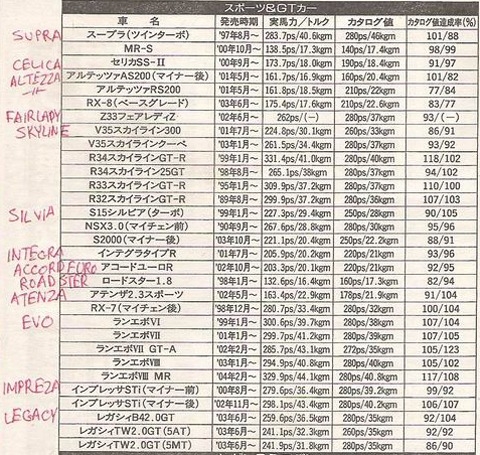 スポーツ&GTカー
車 名 発売時期 実馬力/トルク カタログ値 カタログ値達成率(%)
SUPRA スープラ(ツインターボ) '97年8月～ 283.7ps/40.6kgm 280ps/46kgm 101/88
MR-S '00年10月～ 138.5ps/17.3kgm 140ps/17.4kgm 98/99
CELICA セリカSS-II '00年9月～ 173.7ps/18.0kgm 190ps/18.4kgm 91/97
ALTEZZA アルテッツァAS200(マイナー後) '01年5月～ 161.7ps/16.9kgm 160ps/20.4kgm 101/82
アルテッツァRS200 '01年5月～ 161.8ps/18.5kgm 210ps/22kgm 77/84
RX-8(ベースグレード) '03年6月～ 175.4ps/17.6kgm 210ps/22.6kgm 83/77
FAIRLADY Z33フェアレディZ '02年7月～ 262ps/(−) 280ps/37kgm 93/(−)
SKYLINE V35スカイライン300 '01年7月～ 224.8ps/30.1kgm 260ps/33kgm 86/91
V35スカイラインクーペ '03年1月～ 261.5ps/34.4kgm 280ps/37kgm 93/92
R34スカイラインGT-R '99年1月～ 331.4ps/41.0kgm 280ps/40kgm 118/102
R34スカイライン25GT '98年5月～ 265.1ps/38kgm 280ps/37kgm 94/102
R33スカイラインGT-R '95年1月～ 309.9ps/37.2kgm 280ps/37kgm 110/100
R32スカイラインGT-R '89年8月～ 299.9ps/37.2kgm 280ps/36kgm 107/103
SILVIA S15シルビア(ターボ) '99年1月～ 227.3ps/29.4kgm 250ps/28kgm 90/105
NSX3.0(マイチェン前) '90年9月～ 267.6ps/28.8kgm 280ps/30kgm 95/96
S2000(マイナー後) '03年10月～ 221.1ps/20.4kgm 250ps/22.2kgm 88/91
INTEGRA インテグラタイプR '01年7月～ 205.9ps/20.2kgm 220ps/21kgm 93/96
ACCORD EURO アコードユーロR '02年10月～ 203.3ps/20.1kgm 220ps/21kgm 92/95
ROADSTER ロードスター1.8 '98年1月～ 132.6ps/16.4kgm 160ps/17.3kgm 82/94
ATENZA アテンザ2.3スポーツ '02年5月～ 163.4ps/22.9kgm 178ps/21.9kgm 91/104
RX-7(マイチェン後) '98年12月～ 280.7ps/33.4kgm 280ps/32kgm 100/104
EVO ランエボVI '99年1月～ 300.6ps/39.7kgm 280ps/38kgm 107/104
ランエボVII '01年2月～ 299.1ps/41.7kgm 280ps/39kgm 107/104
ランエボVII GT-A '02年2月～ 285.7ps/43.1kgm 272ps/35kgm 105/123
ランエボVIII '03年1月～ 294.9ps/40.8kgm 280ps/40kgm 105/102
ランエボVIII MR '04年2月～ 329.9ps/44.1kgm 280ps/40.8kgm 117/108
IMPREZA インプレッサSTi(マイナー前) '00年8月～ 279.6ps/36.4kgm 280ps/39.2kgm 99/92
インプレッサSTi(マイナー後) '02年11月～ 298.1ps/43.4kgm 280ps/40.2kgm 106/107
LEGACY レガシィB42.0GT '03年6月～ 259.6ps/36.5kgm 280ps/35kgm 92/104
レガシィTW2.0GT(5AT) '03年6月～ 241.1ps/32.3kgm 260ps/35kgm 92/92
レガシィTW2.0GT(5MT) '03年6月～ 241.9ps/31.8kgm 280ps/35kgm 86/90